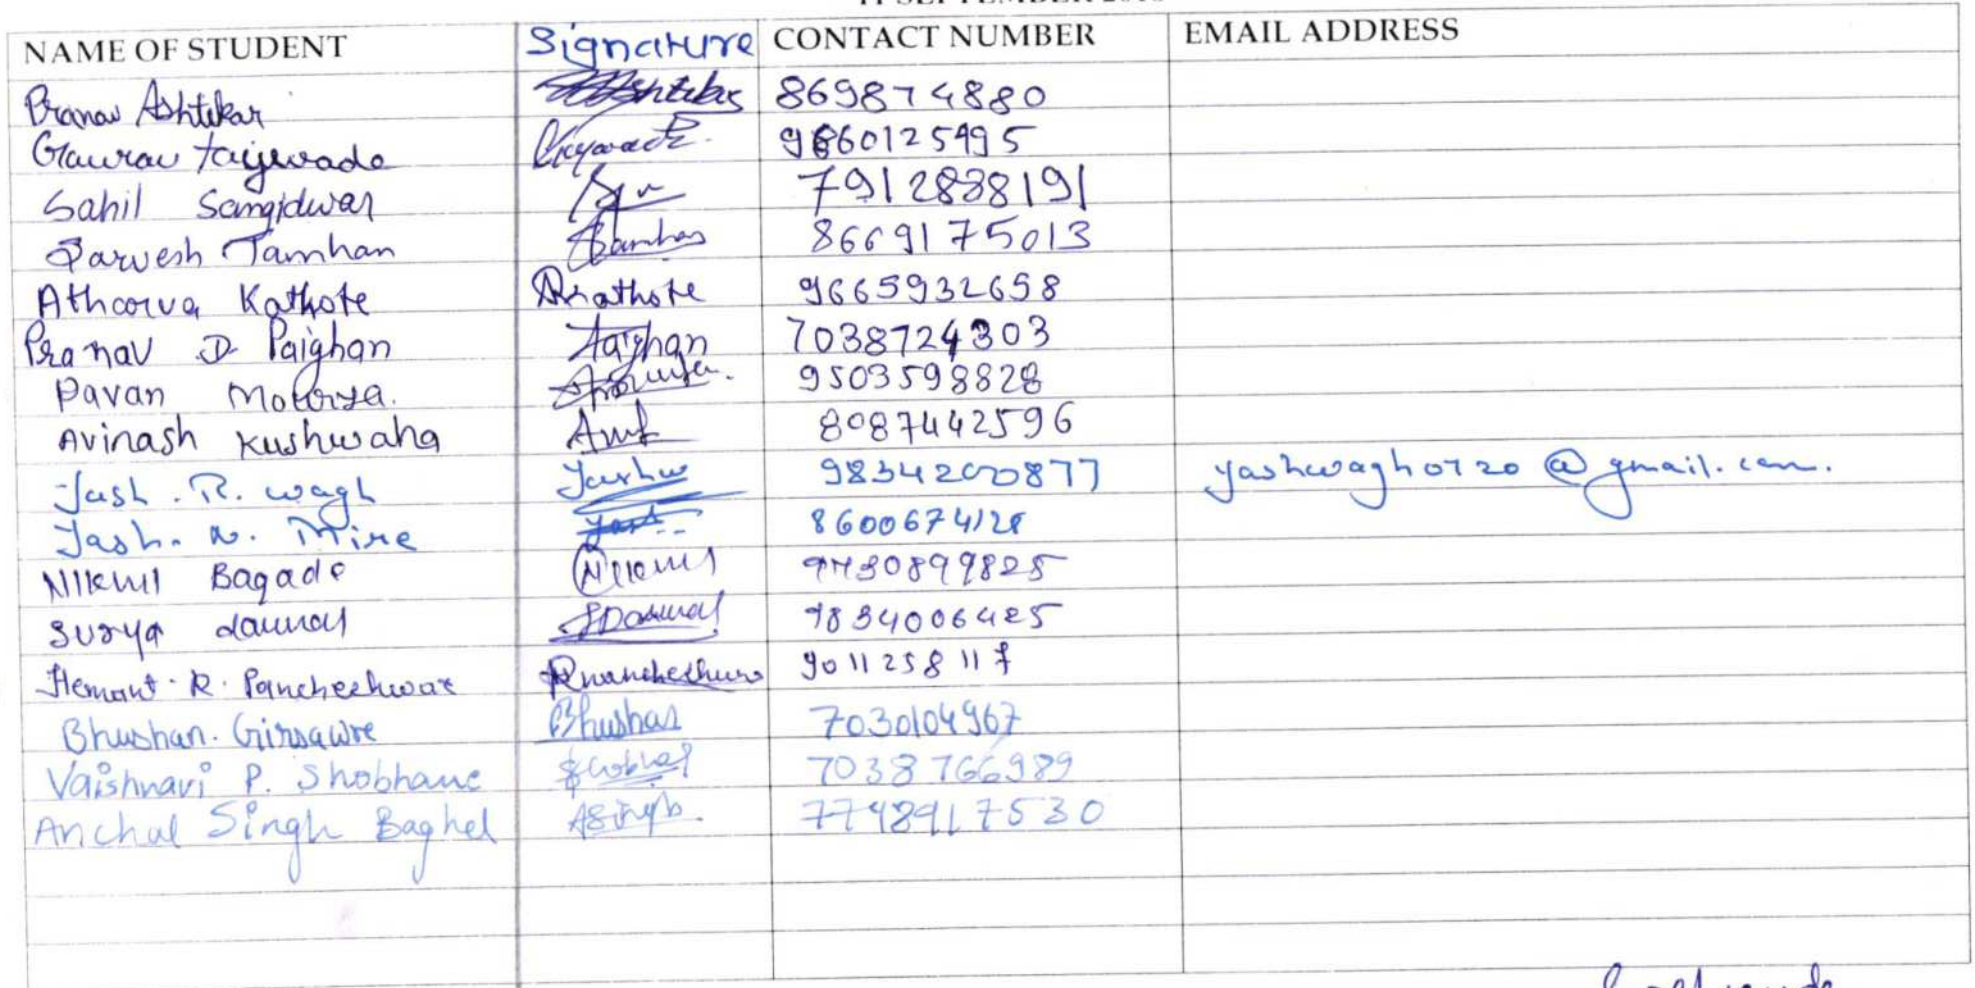 NAME OF STUDENT Signature CONTACT NUMBER EMAIL ADDRESS
Pranav Ashtikar 869874880
Gaurav Taijwade 9860125495
Sahil Sangidwar 7912838191
Sarvesh Tamhan 8669175013
Atharva Kathote Akathote 9665932658
Pranav D Paighan Paighan 7038724303
Pavan Motorya. 9503598828
Avinash Kushwaha 8087442596
Yash . R. wagh Yashw 9834200877 yashwagh0720@gmail.com.
Yash. N. Mire Yash 8600674128
Nikhil Bagade Nikhil 9730899825
Surya daunay 9834006425
Hemant R. Pancheshwar 9011258117
Bhushan. Girsawre Bhushan 7030104967
Vaishnavi P. Shobhane 7038766989
Anchal Singh Baghel ASingh. 7748917530